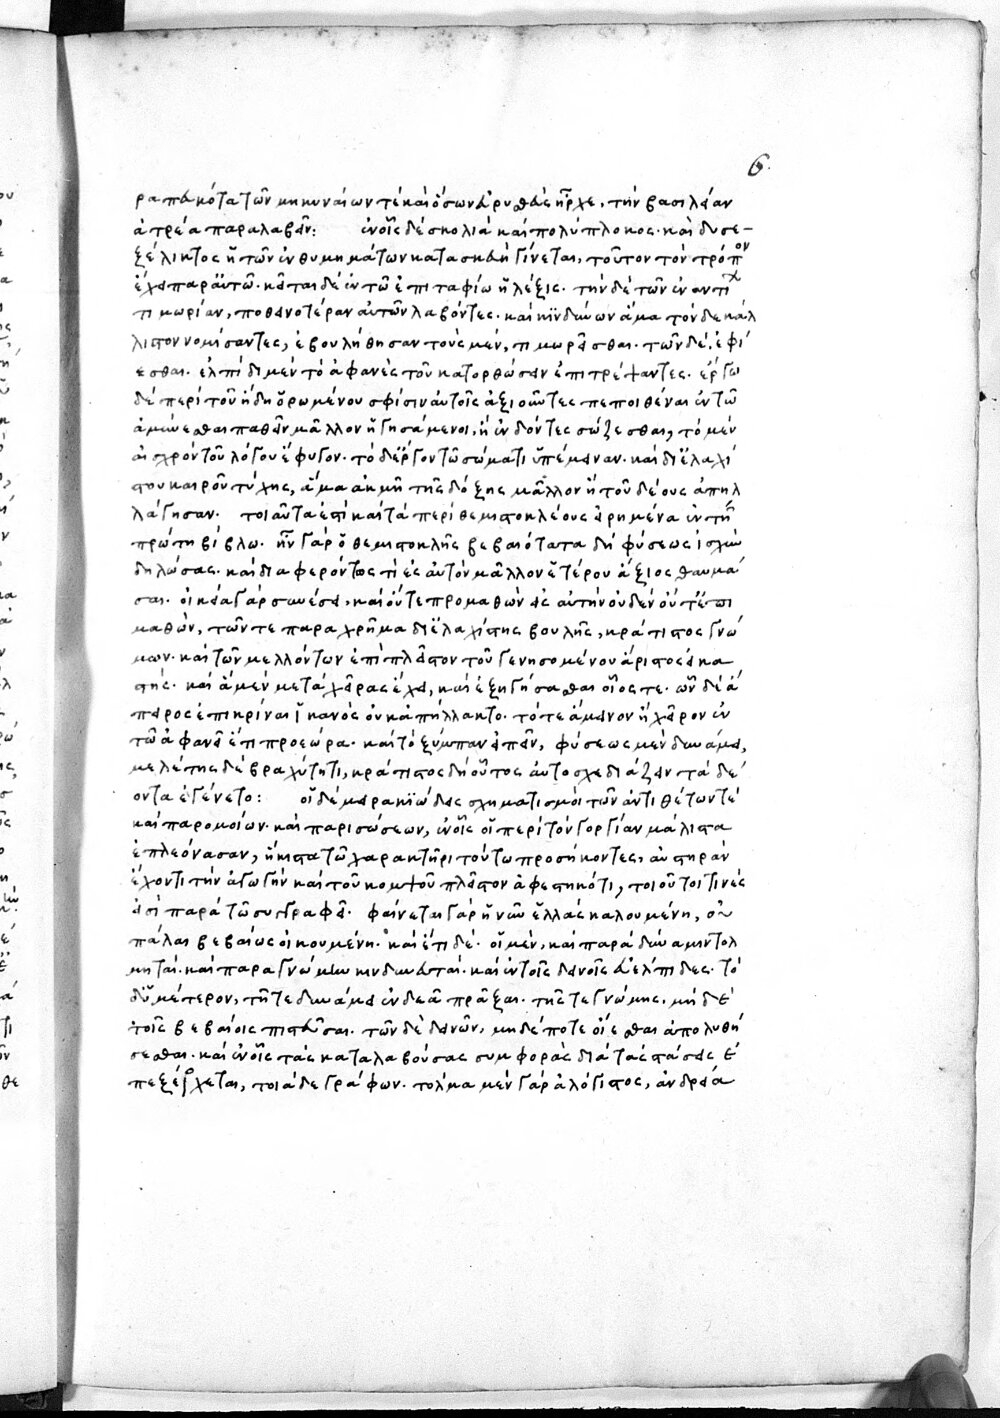 6
ραπευκότα τῶν μυκηναίων τέ καὶ ὅσων εὐρυσθεὺς ἦρχε, τὴν βασιλείαν
ἀτρέα παραλαβεῖν: ἐν οἷς δὲ σκολιὰ καὶ πολύπλοκος. καὶ δυσε-
ξέλικτος ἡ τῶν ἐνθυμημάτων κατασκευὴ γίνεται, τοῦτον τὸν τρόπον
ἔχει παρ' αὐτῷ. κεῖται δὲ ἐν τῷ ἐπιταφίῳ ἡ λέξις. τὴν δὲ τῶν ἐναντί
τιμωρίαν, ποθεινοτέραν αὐτῶν λαβόντες. καὶ κινδύνων ἅμα τόνδε κάλ
λιστον νομίσαντες, ἐβουλήθησαν τοὺς μέν, τιμωρεῖσθαι. τῶν δέ, ἐφί
εσθαι. ἐλπίδι μὲν τὸ ἀφανὲς τοῦ κατορθώσειν ἐπιτρέψαντες. ἔργω
δὲ περὶ τοῦ ἤδη ὁρωμένου σφίσιν αὐτοῖς ἀξιοῦντες πεποιθέναι ἐν τῶ
ἀμύνεσθαι παθεῖν μᾶλλον ἡγησάμενοι, ἢ ἐνδόντες σώζεσθαι, τὸ μὲν
αἰσχρὸν τοῦ λόγου ἔφυγον. τὸ δ' ἔργον τῶ σώματι ὑπέμειναν. καὶ δι' ἐλαχί
στου καιροῦ τύχης, ἅμα ἀκμῆ τῆς δόξης μᾶλλον ἢ τοῦ δέους ἀπηλ
λάγησαν. τοιαῦτα ἐστὶ καὶ τὰ περὶ θεμιστοκλέους εἰρημένα ἐν τῆ
πρώτη βίβλω. ἦν γὰρ ὁ θεμιστοκλῆς βεβαιότατα δὴ φύσεως ἰσχὺν
δηλώσας. καὶ διαφερόντως τὶ ἐς αὐτὸν μᾶλλον ἑτέρου ἄξιος θαυμά
σαι. οἰκεία γὰρ συνέσει, καὶ οὔτε προμαθὼν εἰς αὐτὴν οὐδὲν οὔτ' ἐπι
μαθών, τῶν τε παραχρῆμα δι' ἐλαχίστης βουλῆς, κράτιστος γνώ
μων. καὶ τῶν μελλόντων ἐπὶ πλεῖστον τοῦ γενησομένου ἄριστος εἰκα
στής. καὶ ἃ μὲν μετὰ χεῖρας ἔχει, καὶ ἐξηγήσασθαι οἷός τε. ὧν δὲ ἄ
πειρος ἐπικρίναι ἱκανὸς οὐκ ἀπήλλακτο. τό τε ἄμεινον ἢ χεῖρον ἐν
τῶ ἀφανεῖ ἔτι προεώρα. καὶ τὸ ξύμπαν εἰπεῖν, φύσεως μὲν δυνάμει,
μελέτης δὲ βραχύτητι, κράτιστος δὴ οὗτος αὐτοσχεδιάζειν τὰ δέ
οντα ἐγένετο: οἱ δὲ μειρακιώδεις σχηματισμοὶ τῶν ἀντιθέτων τὲ
καὶ παρομοίων. καὶ παρισώσεων, ἐν οἷς οἱ περὶ τὸν γοργίαν μάλιστα
ἐπλεόνασαν, ἥκιστα τῶ χαρακτῆρι τούτω προσήκοντες, αὐστηρὰν
ἔχοντι τὴν ἀγωγὴν καὶ τοῦ κομψοῦ πλεῖστον ἀφεστηκότι, τοιοῦτοι τινές
εἰσὶ παρὰ τῶ συγγραφεῖ. φαίνεται γὰρ ἡ νῦν ἑλλὰς καλουμένη, οὐ
πάλαι βεβαίως οἰκουμένη. καὶ ἔτι δέ. οἱ μέν, καὶ παρὰ δύναμιν τολ
μηταί. καὶ παρὰ γνώμην κινδυνευταί. καὶ ἐν τοῖς δεινοῖς εὐέλπιδες. τὸ
δ' ὑμέτερον, τῆς τε δυνάμει ἐνδεᾶ πρᾶξαι. τῆς τε γνώμης. μὴ δὲ
τοῖς βεβαίοις πιστεῦσαι. τῶν δὲ δεινῶν, μηδέποτε οἴεσθαι ἀπολυθή
σεσθαι. καὶ ἐν οἷς τὰς καταλαβούσας συμφορὰς διὰ τὰς στάσεις ἐ
πεξέρχεται, τοιάδε γράφων. τόλμα μὲν γὰρ ἀλόγιστος, ἀνδρεία